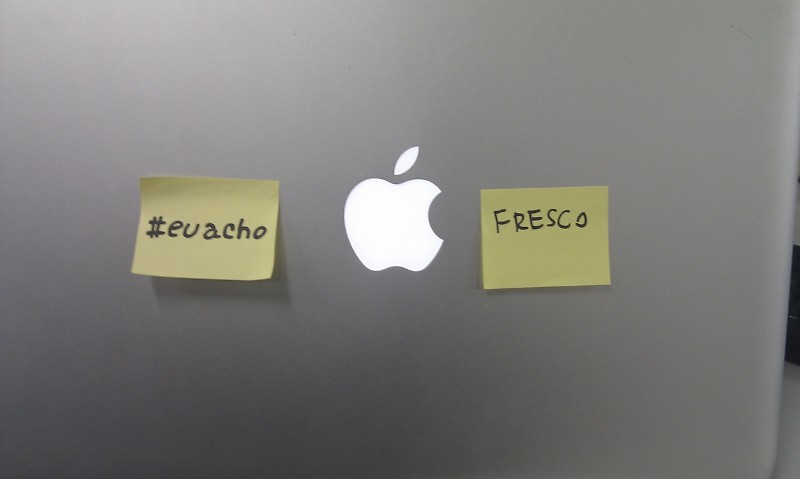 #euacho
FRESCO